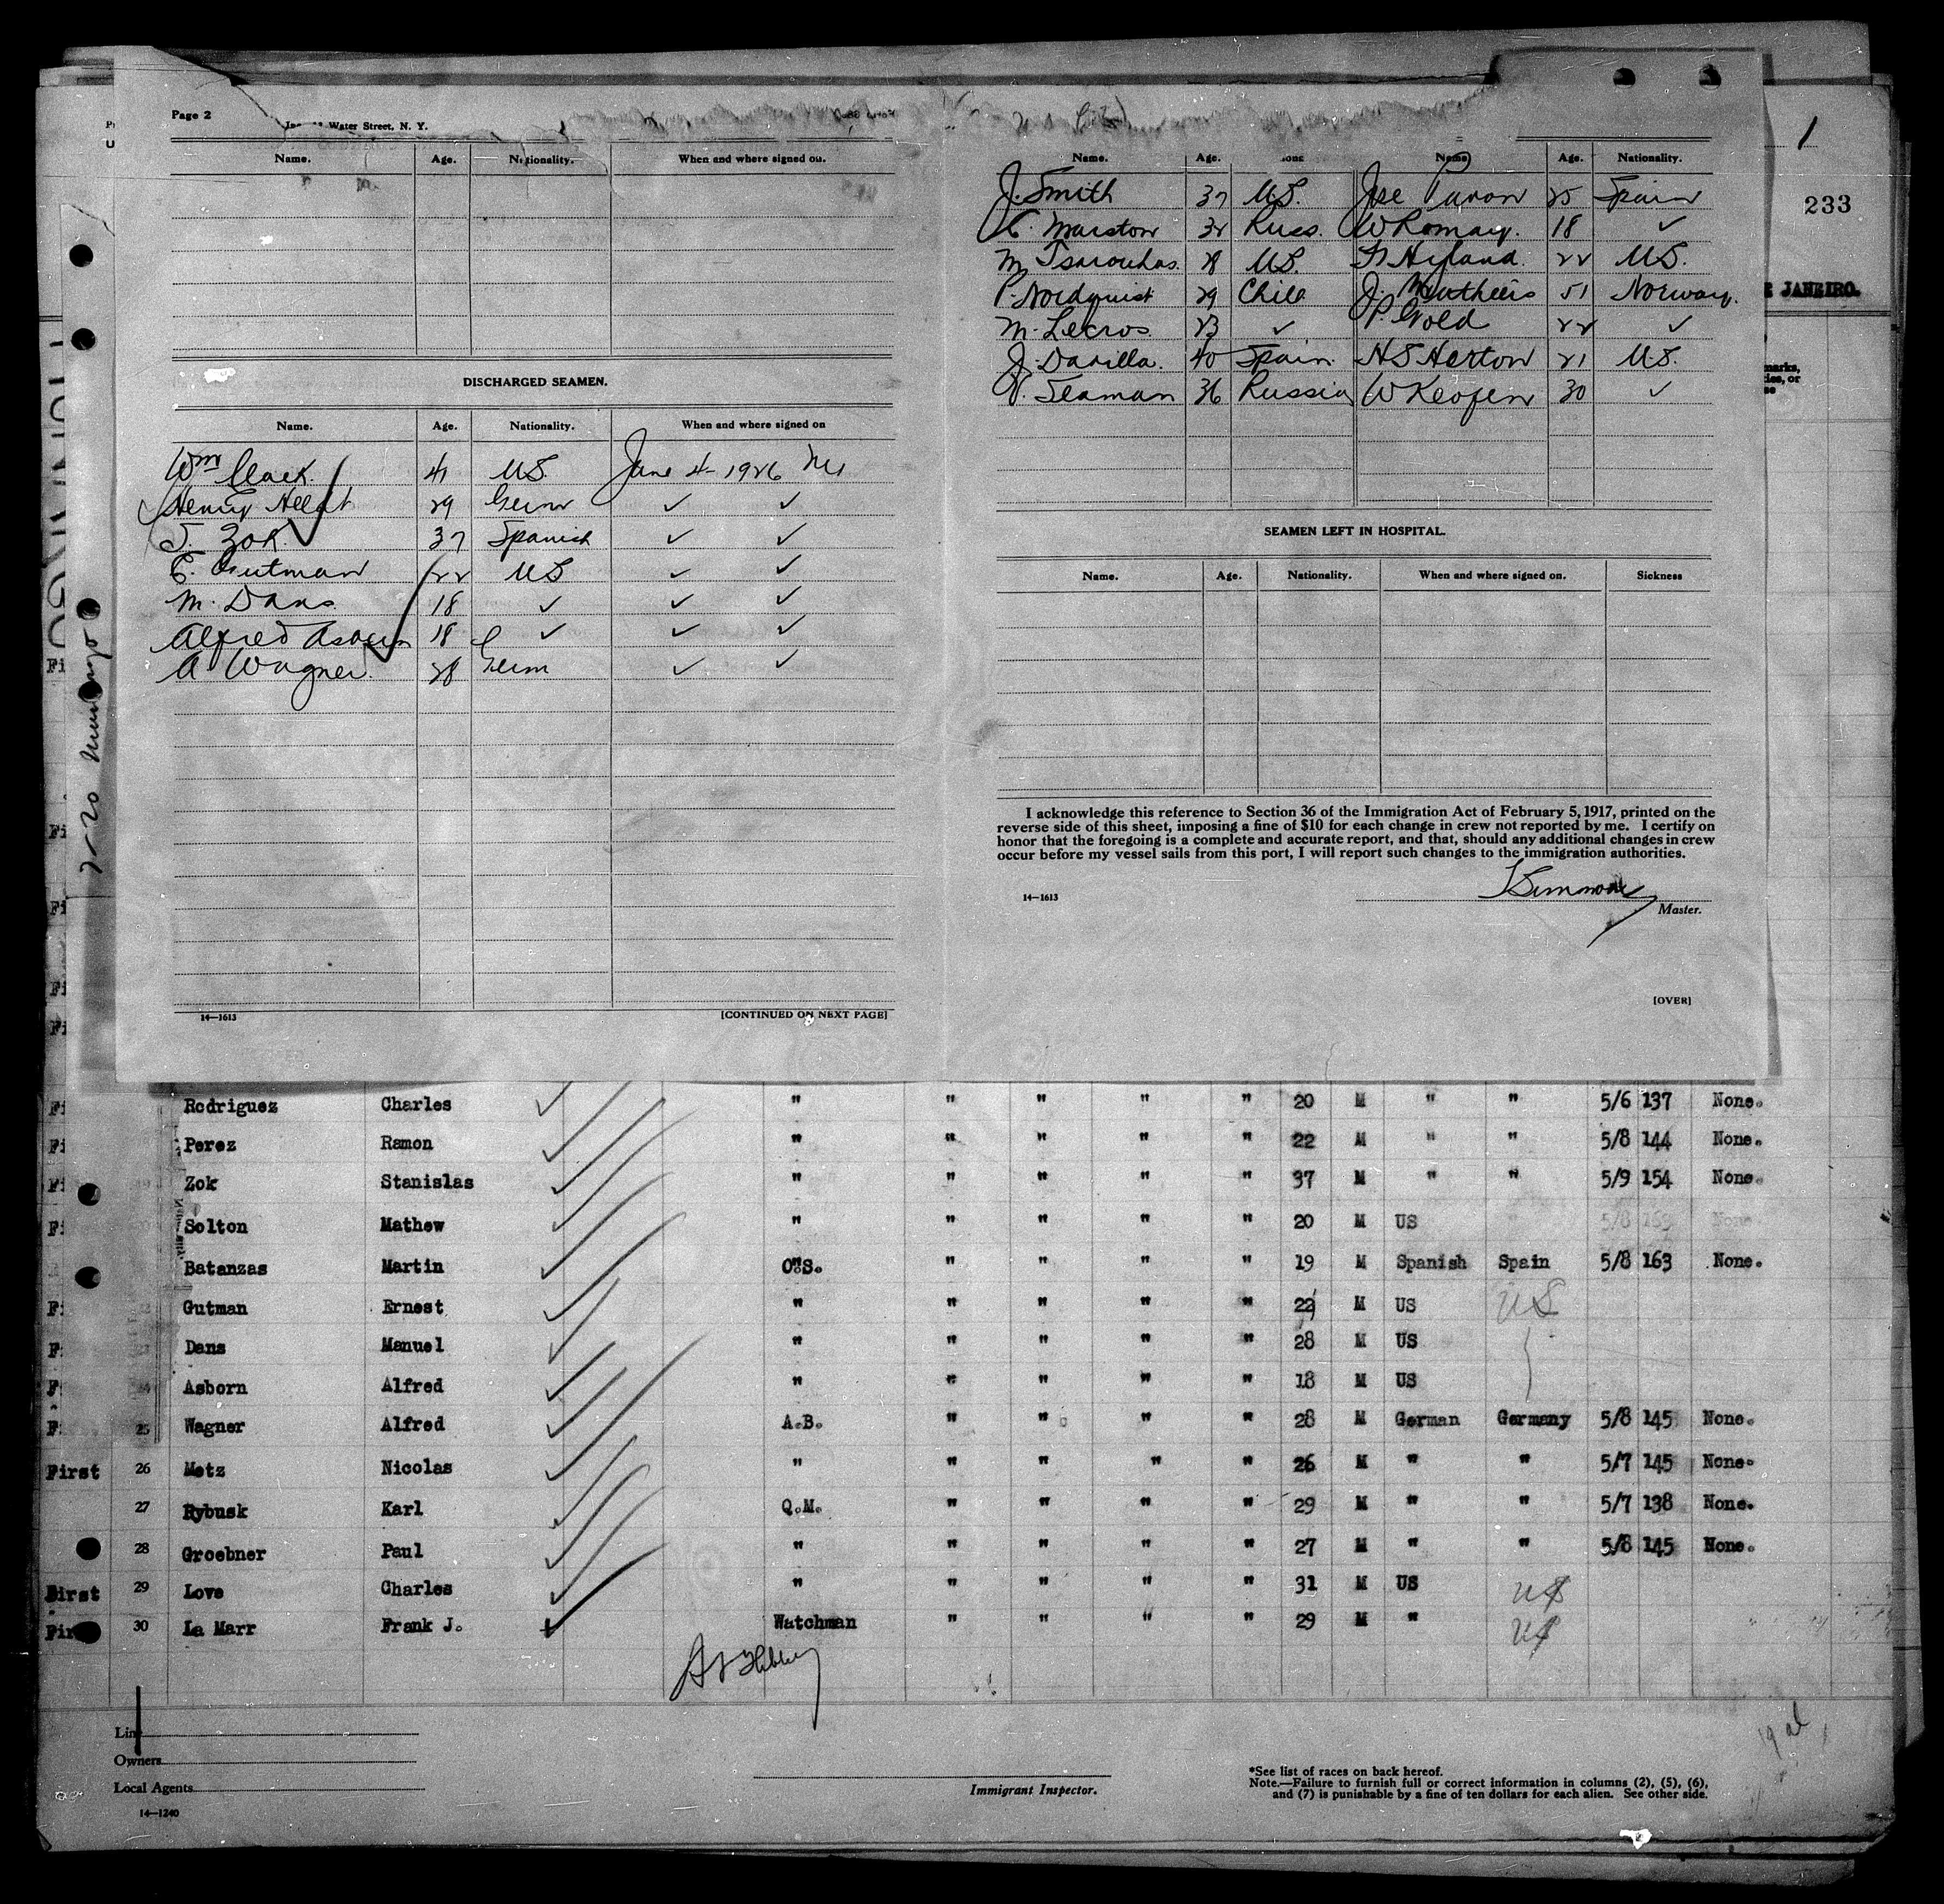 Page 2
Water Street, N. Y.
Name. Age. Nationality. When and where signed on.
DISCHARGED SEAMEN.
Name. Age. Nationality. When and where signed on
Wm Clark. 41 US. June 4- 1926 NY
Henry 29 Germ ✓ ✓
S. Zok. 37 Spanish ✓ ✓
E. Gutman 22 US ✓ ✓
M. Dans. 18 ✓ ✓ ✓
Alfred Asborn 18 ✓ ✓ ✓
A Wagner. 28 Germ ✓ ✓
14—1613 [CONTINUED ON NEXT PAGE]
Name. Age. Name Age. Nationality.
J. Smith 37 US. Jose Pavon 25 Spain
Marston 32 Russ. W Romay. 18 ✓
M Tsarouhas. 28 US. Hyland. 22 US.
P. Nordquist 29 Chile J. 51 Norway.
M. Lecros. 23 ✓ P. Gold 22 ✓
J. Davilla. 40 Spain. H S Herton 21 US.
Seaman 36 Russia W Keofen 30 ✓
SEAMEN LEFT IN HOSPITAL.
Name. Age. Nationality. When and where signed on. Sickness
I acknowledge this reference to Section 36 of the Immigration Act of February 5, 1917, printed on the
reverse side of this sheet, imposing a fine of $10 for each change in crew not reported by me. I certify on
honor that the foregoing is a complete and accurate report, and that, should any additional changes in crew
occur before my vessel sails from this port, I will report such changes to the immigration authorities.
14—1613
Master.
[OVER]
1
233
JANEIRO.
7-20 Munargo
Rodriguez Charles ✓ " " " " " 20 M " " 5/6 137 None.
Perez Ramon ✓ " " " " " 22 M " " 5/8 144 None.
Zok Stanislas ✓ " " " " " 37 M " " 5/9 154 None.
Solton Mathew ✓ " " " " " 20 M US 5/8 163 None
Batanzas Martin ✓ O.S. " " " " 19 M Spanish Spain 5/8 163 None.
Gutman Ernest ✓ " " " " " 22 M US US
Dans Manuel ✓ " " " " " 28 M US
Asborn Alfred ✓ " " " " " 18 M US
25 Wagner Alfred ✓ A.B. " " " " 28 M German Germany 5/8 145 None.
First 26 Metz Nicolas ✓ " " " " " 26 M " " 5/7 145 None.
27 Rybusk Karl ✓ Q.M. " " " " 29 M " " 5/7 138 None.
28 Groebner Paul ✓ " " " " " 27 M " " 5/8 145 None.
First 29 Love Charles ✓ " " " " " 31 M US US
First 30 La Marr Frank J. ✓ Watchman " " " " 29 M " US
Line
Owners
Local Agents
14—1240
Immigrant Inspector.
*See list of races on back hereof.
Note.—Failure to furnish full or correct information in columns (2), (5), (6),
and (7) is punishable by a fine of ten dollars for each alien. See other side.